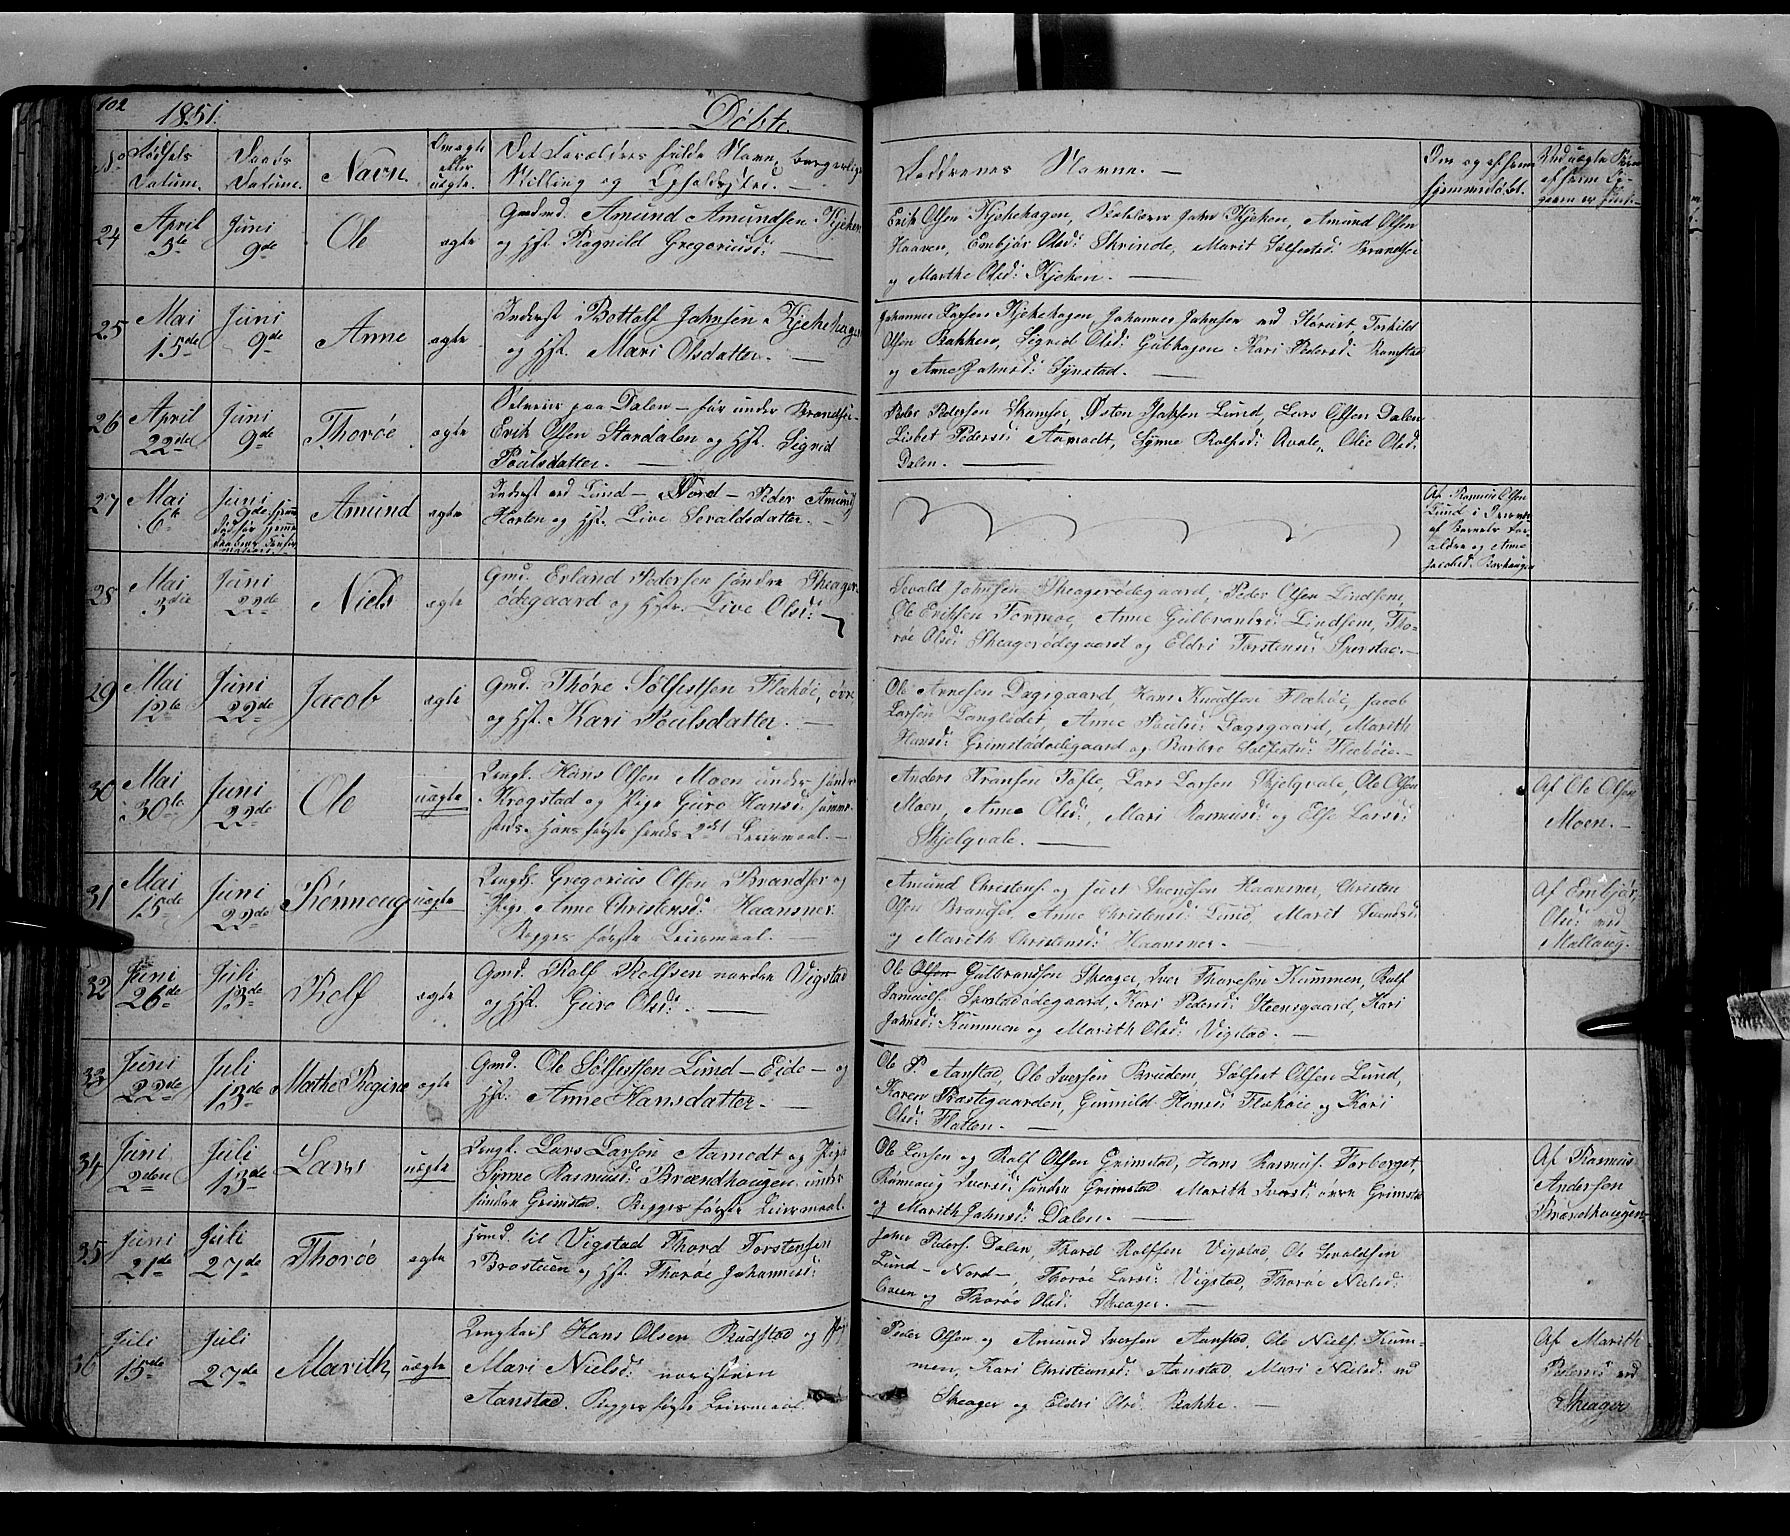 102
1851.
Døbte.
No
Fødsels Datum.
Daabs Datum.
Navn
ægte eller uægte.
Forældres fulde Navn, borgerlige
Stilling og Opholdssted. —
Faddrenes Navne. —
Om og af hvem
hjemmedøbt.
24
April
5te
Juni
9de
Ole
ægte
Gmd. Amund Amundsen Kjøken
og Hst. Ragnild Gregoriusd:
Erik Olsen Kjøkehagen, John Kjøken, Amund Olsen
Haaven, Embjør Olsd: Skrinde, Marit Sølfestsd:
og Marthe Olsd: Kjøken. —
25
Mai
15de
Juni
9de
Anne
ægte
Inderst Bottolf Johnsen Kjøkehagen
og Hst. Mari Olsdatter. —
Johannes Larsen Kjøkehagen, Johannes Johnsen
Olsen Bakken, Sigrid Olsd: Kari Pedersd: Ramstad
og Anne Johnsd: Synstad. —
26
April
22de
Juni
9de
Thorøe
ægte
paa Dalen — før under
Erik Olsen Stordalen og Hst. Sigrid
Poulsdatter. —
Peder Pedersen Skamsar, Østen Lund, Lars Olsen Dalen
Lisbet Pedersd: Aamodt, Synne Rolfsd: Qvale, Olie Olsd:
Dalen. —
27
Mai
6te
Juni
9de
Amund
ægte
Inderst ved Lund — Nord — Peder Amunds
og Hst. Live Sevaldsdatter. —
Af Rasmus Olsen
Lund i
af Barnets
og Anne
28
Mai
3die
Juni
22de
Niels
ægte
Gmd. Erland Pedersen søndre Skeager-
ødegaard og Hst. Live Olsd: —
Sevald Johnsen Skeagerødegaard, Peder Olsen Lindsem,
Ole Eriksen Formoe, Anne Gulbrandsd: Lindsem, Tho-
røe Olsd: Skeagerødegaard og Eldri Torstensd: —
29
Mai
12te
Juni
22de
Jacob
ægte
Gmd. Thøre Sølfestsen Flækøie, øvre
og Hst. Kari Poulsdatter. —
Ole Arnesen Dagsgaard, Hans Knudsen Flækøie, Jacob
Larsen Langlødet, Anne Poulsd: Dagsgaard, Marith
Hansd: Grimstadødegaard og Barbro Sølfestsd: Flækøie. —
30
Mai
30te
Juni
22de
Ole
uægte
Ungk. Hans Olsen Moen under søndre
Krogstad og Pige Guro Hansd:
Hans første hends 2det Leiermaal. —
Anders Fransen Tofte, Lars Larsen Skjelqvale, Ole Olsen
Moen, Anne Olsd:, Mari Rasmusd: og Else Larsd:
Skjelqvale. —
Af Ole Olsen
Moen. —
31
Mai
15de
Juni
22de
Rønnoug
uægte
Ungk. Gregorius Olsen og
Pige Anne Christensd: Haansner
Begges første Leiermaal. —
Amund Christens. og Svendsen Haansner, Christen
Olsen Anne Christensd: Lund, Marit Svendsd:
og Marith Christensd: Haansner. —
Af Embjør
Olsd: ved
Mallaug.
32
Juni
26de
Juli
13de
Rolf
ægte
Gmd. Rolf Rolfsen nordre Vigstad
og Hst. Guro Olsd: —
Ole Olsen Gulbrandsen Skeager, Iver Thoresen Kummen, Rolf
Samuels. Kari Pedersd: Steensgaard, Kari
Johnsd: Kummen og Marith Olsd: Vigstad. —
33
Juni
22de
Juli
13de
Mathe Regine
ægte
Gmd. Ole Sølfestsen Lund — Eide — og
Hst. Anne Hansdatter. —
Ole P. Aanstad, Ole Iversen Bruden, Sølfest Olsen Lund,
Karen Præstegaarden, Gunnild Hansd: Flækøie og Kari
Olsd: Flatten. —
34
Juni
2den
Juli
13de
Lars
uægte
Ungk. Lars Larsen Aamodt og Pige
Synne Rasmusd: Brændhaugen under
søndre Grimstad. Begges første Leiermaal.
Ole Larsen og Rolf Olsen Grimstad, Hans Rasmus. Forberget,
Rønnoug Iversd: søndre Grimstad Marith Iversd: øvre Grimstad
og Marith Johnsd: Dalen. —
Af Rasmus
Andersen
Brændhaugen
35
Juni
21de
Juli
27de
Thorøe
ægte
Hmd. til Vigstad Thord Torstensen
Brostuen og Hst. Thorøe Johannesd:
John Peders. Dalen, Thord Rolfsen Vigstad, Ole Sevaldsen
Lund — Nord —, Thorøe Larsd: Vigstad, Thorøe Nielsd:
og Thorøe Olsd: Skeager. —
36
Juli
15de
Juli
27de
Marith
uægte
Ungkarl Hans Olsen Rudstad og Pige
Mari Nielsd:
Aanstad. Begges første Leiermaal.
Peder Olsen og Amund Iversen Aanstad, Ole Niels. Kum-
men, Kari Christensd: Aanstad, Mari Nielsd: ved
Skeager og Eldri Olsd: Bakke. —
Af Marith
Pedersd: ved
Skeager